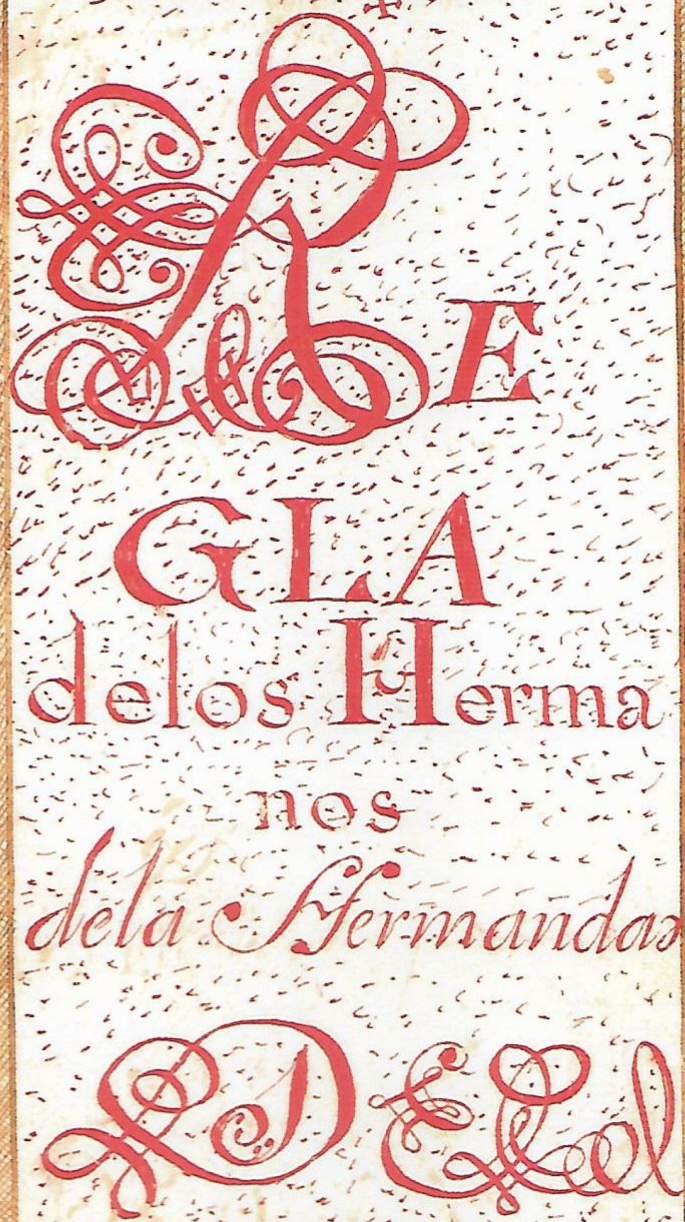 RE
GLA
delos Herma
nos
dela Hermandad
DEL